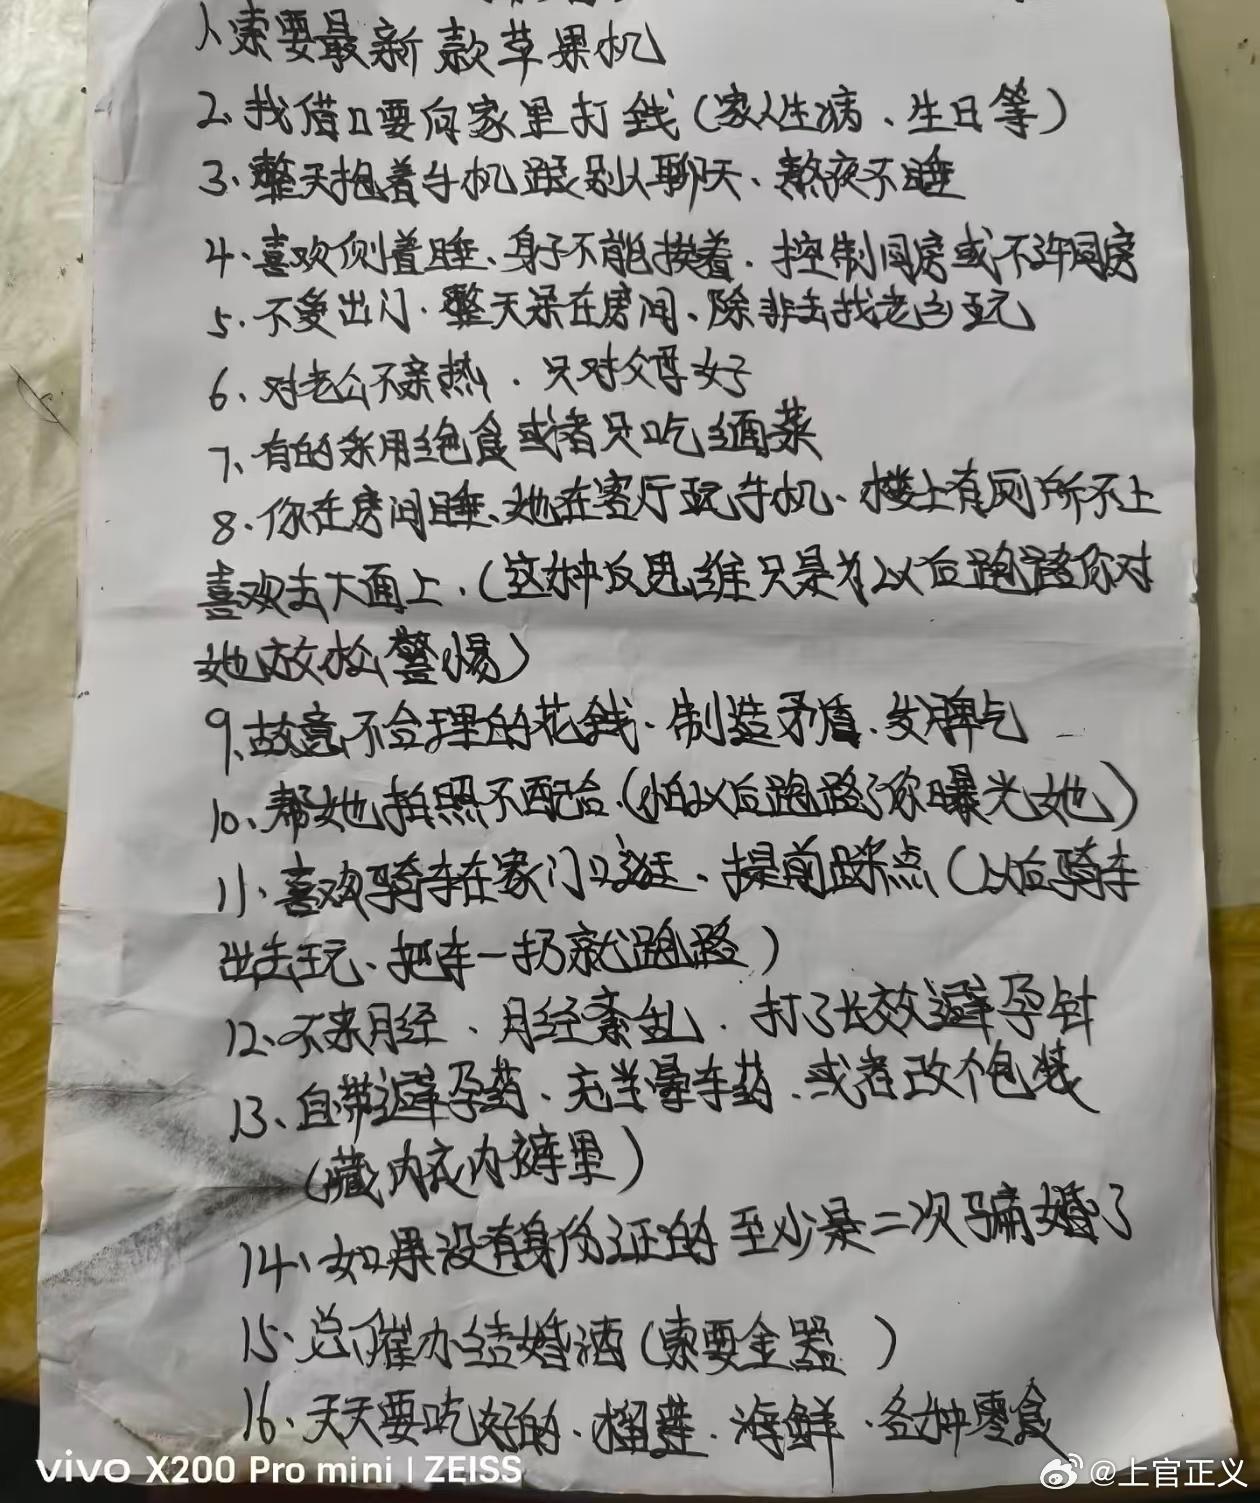 1、索要最新款苹果机
2、找借口要向家里打钱(家人生病、生日等)
3、整天抱着手机跟别人聊天、熬夜不睡
4、喜欢侧着睡、身子不能挨着.控制同房或不许同房
5、不爱出门.整天呆在房间、除非去找老乡玩
6、对老公不亲热.只对父母好
7、有的采用绝食或者只吃面菜
8、你在房间睡、她在客厅玩手机、楼上有厕所不上
喜欢去大面上.(这种反思维只是为以后跑路你对
她放松警惕)
9、故意不合理的花钱.制造矛盾、发脾气
10、帮她拍照不配合.(怕以后跑路了你曝光她)
11、喜欢骑车在家门口逛、提前踩点(以后骑车
出去玩、把车一扔就跑路)
12、不来月经、月经紊乱.打了长效避孕针
13、自带避孕药、充当晕车药.或者改个包装
(藏内衣内裤里)
14、如果没有身份证的至少是二次骗婚了
15、总催办结婚酒(索要金器)
16、天天要吃好的、榴莲、海鲜、各种零食
vivo X200 Pro mini | ZEISS
@上官正义